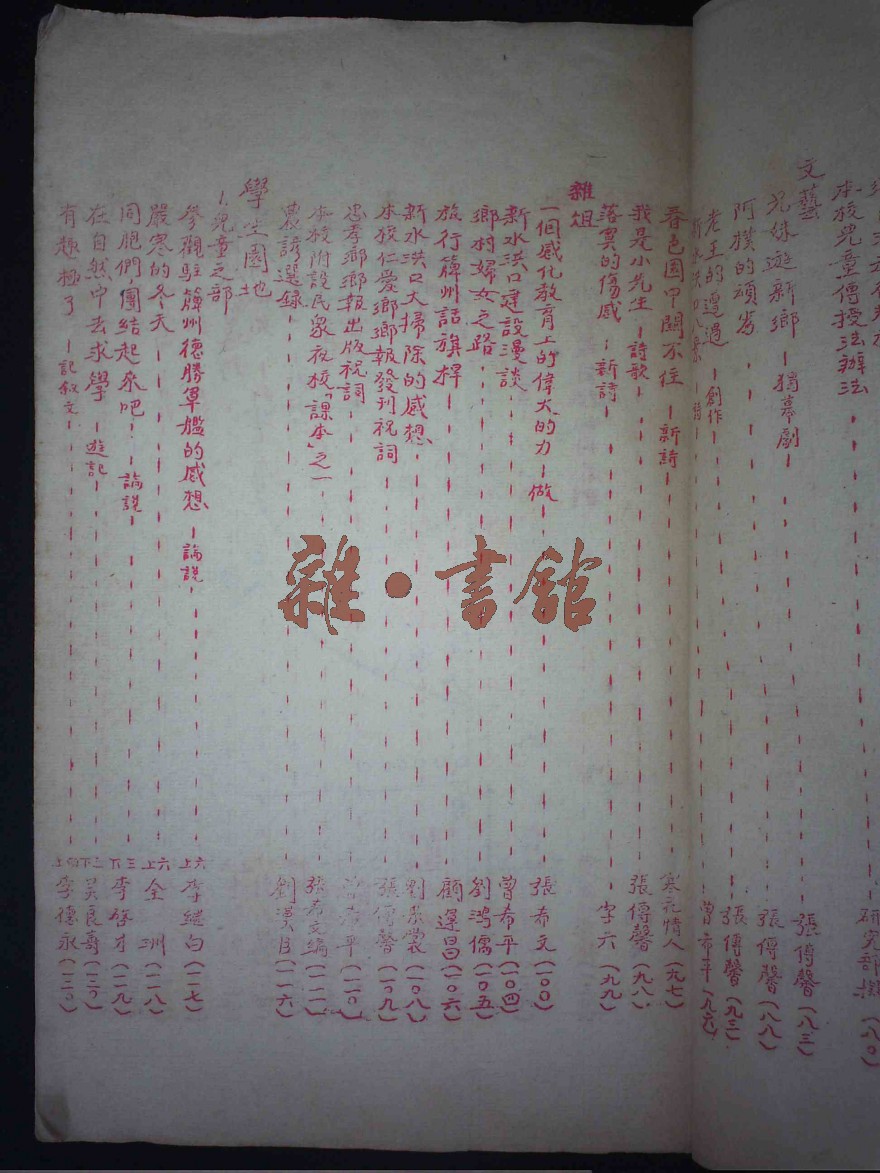 本校兒童傳授法辦法 研究部擬(八〇)
文藝
兄妹遊新鄉—獨幕劇— 張傳馨(八三)
阿撲的頑劣 張傳馨(八八)
老王的遭遇—創作— 張傳馨(九三)
曾希平(九六)
春色園中關不住—新詩— 寒元情人(九七)
我是小先生—詩歌— 張傳馨(九八)
落寞的傷感—新詩— 字六(九九)
雜俎
一個感化教育上的偉大的力—做— 張希文(一〇〇)
新水洪口建設漫談 曾希平(一〇四)
鄉村婦女之路 劉鴻儒(一〇五)
旅行簰州話旗桿 顧遜昌(一〇六)
新水洪口大掃除的感想 劉棠(一〇八)
本校仁愛鄉鄉報發刊祝詞 張傳馨(一〇九)
忠孝鄉鄉報出版祝詞 曾希平(一一〇)
本校附設民衆夜校「課本」之一 張希文編(一一一)
農諺選錄 劉漢(一一六)
學生園地
1.兒童之部
參觀駐簰州德勝軍艦的感想—論說 六上 李繼白(一二七)
嚴寒的冬天 六上 全洲(一二八)
同胞們,團結起來吧!—論說— 三下 李啓才(一二九)
在自然中去求學—遊記 二下 吴良壽(一三〇)
有趣極了—記叙文 四上 李德永(一三〇)
雜·書館